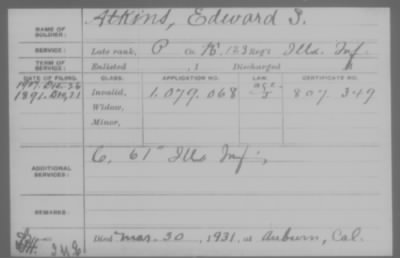 NAME OF SOLDIER: Atkins, Edward S.
SERVICE: Late rank, P Co. K, 123 Reg't Ills. Inf.
TERM OF SERVICE: Enlisted , 1 Discharged
DATE OF FILING. CLASS. APPLICATION NO. LAW. CERTIFICATE NO.
1907. Dec. 26 age
1891. Dec. 21 Invalid, 1.079.068 J 807.349
Widow,
Minor,
ADDITIONAL SERVICES: C. 61" Ills Inf.
REMARKS:
Died Mar. 30, 1931, at Auburn, Cal.